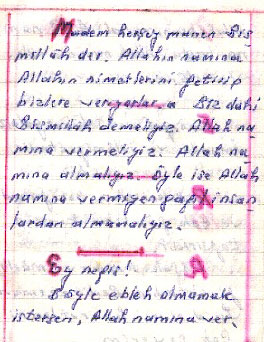 Madem herşey manen Bis
millâh der. Allahın namına
Allahın nimetlerini getirip
bizlere veriyorlar. Biz dahi
Bismillâh demeliyiz. Allah na
mına vermeliyiz. Allah na
mına almalıyız. Öyle ise Allah
namına vermeyen gafil insan
lardan almamalıyız.
Ey nefis!
Böyle ebleh olmamak
istersen, Allah namına ver,